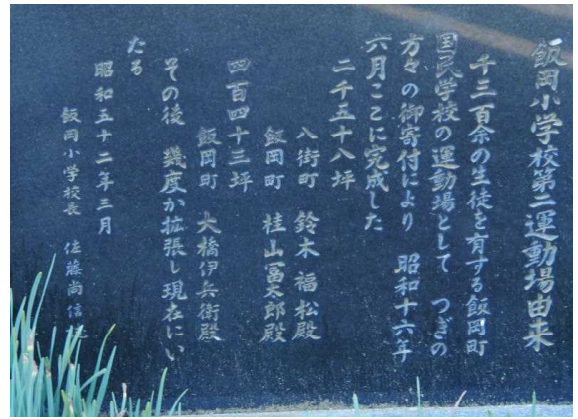 飯岡小学校第二運動場由来
千三百余の生徒を有する飯岡町
国民学校の運動場として　つぎの
方々の御寄付により　昭和十六年
六月ここに完成した
二千五十八坪
八街町　鈴木福松殿
飯岡町　桂山冨太郎殿
四百四十三坪
飯岡町　大橋伊兵衛殿
その後　幾度か拡張し現在にい
たる
昭和五十二年三月
飯岡小学校長　佐藤尚信